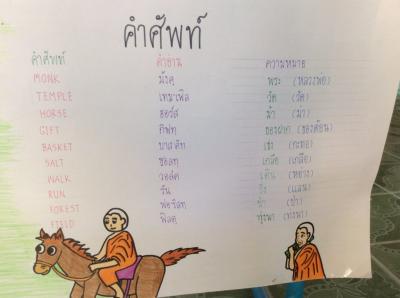 คำศัพท์
คำศัพท์ คำอ่าน ความหมาย
MONK มังคฺ พระ (หลวงพ่อ)
TEMPLE เทมเพิล วัด (วัด)
HORSE ฮอร์ส ม้า (ม้า)
GIFT กิฟทฺ ของฝาก (ของต้อน)
BASKET บาสคิท เข่ง (กะทอ)
SALT ซอลทฺ เกลือ (เกลือ)
WALK วอล์ค เดิน (หย่าง)
RUN รัน วิ่ง (แล่น)
FOREST ฟอร์เรสทฺ ป่า (ป่า)
FIELD ฟิลดฺ ทุ่งนา (ทงนา)